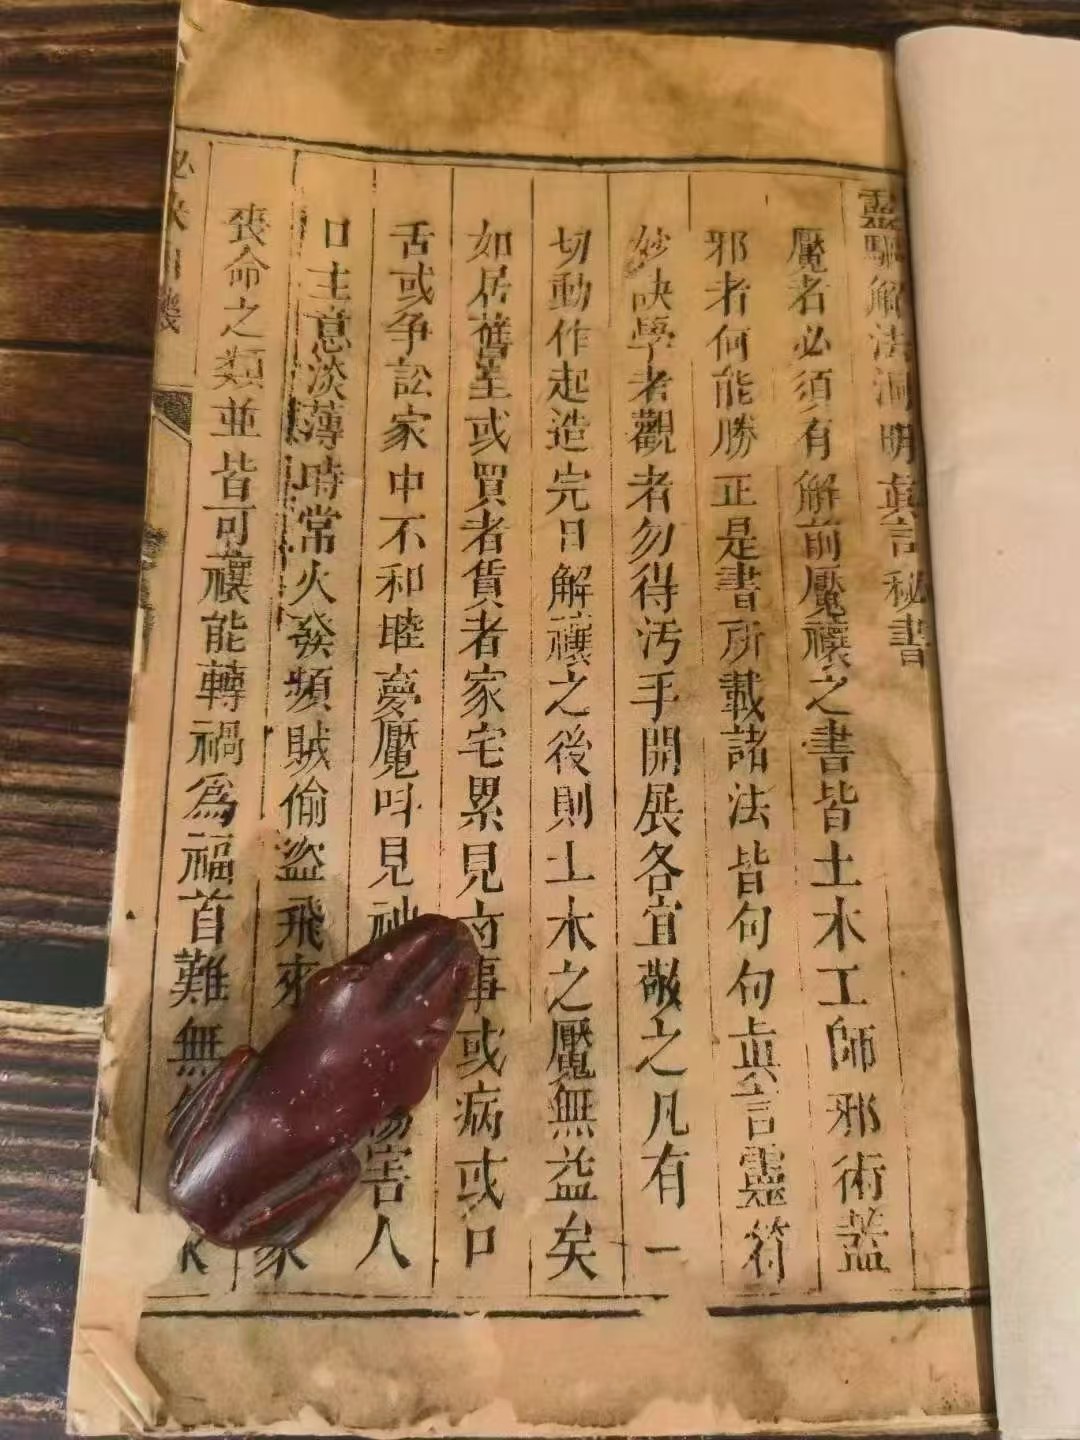 靈驅解法洞明真言秘書
魘者必須有解前魘禳之書皆土木工師邪術蓋
邪者何能勝正是書所載諸法皆句句真言靈符
妙訣學者觀者勿得汚手開展各宜敬之凡有一
切動作起造完日解禳之後則土木之魘無益矣
如居舊室或買者賃者家宅累見事或病或口
舌或争訟家中不和睦夢魘呌見神害人
口主意淡薄時常火發頻賊偷盜飛來家
喪命之類並皆可禳能轉禍為福首難無